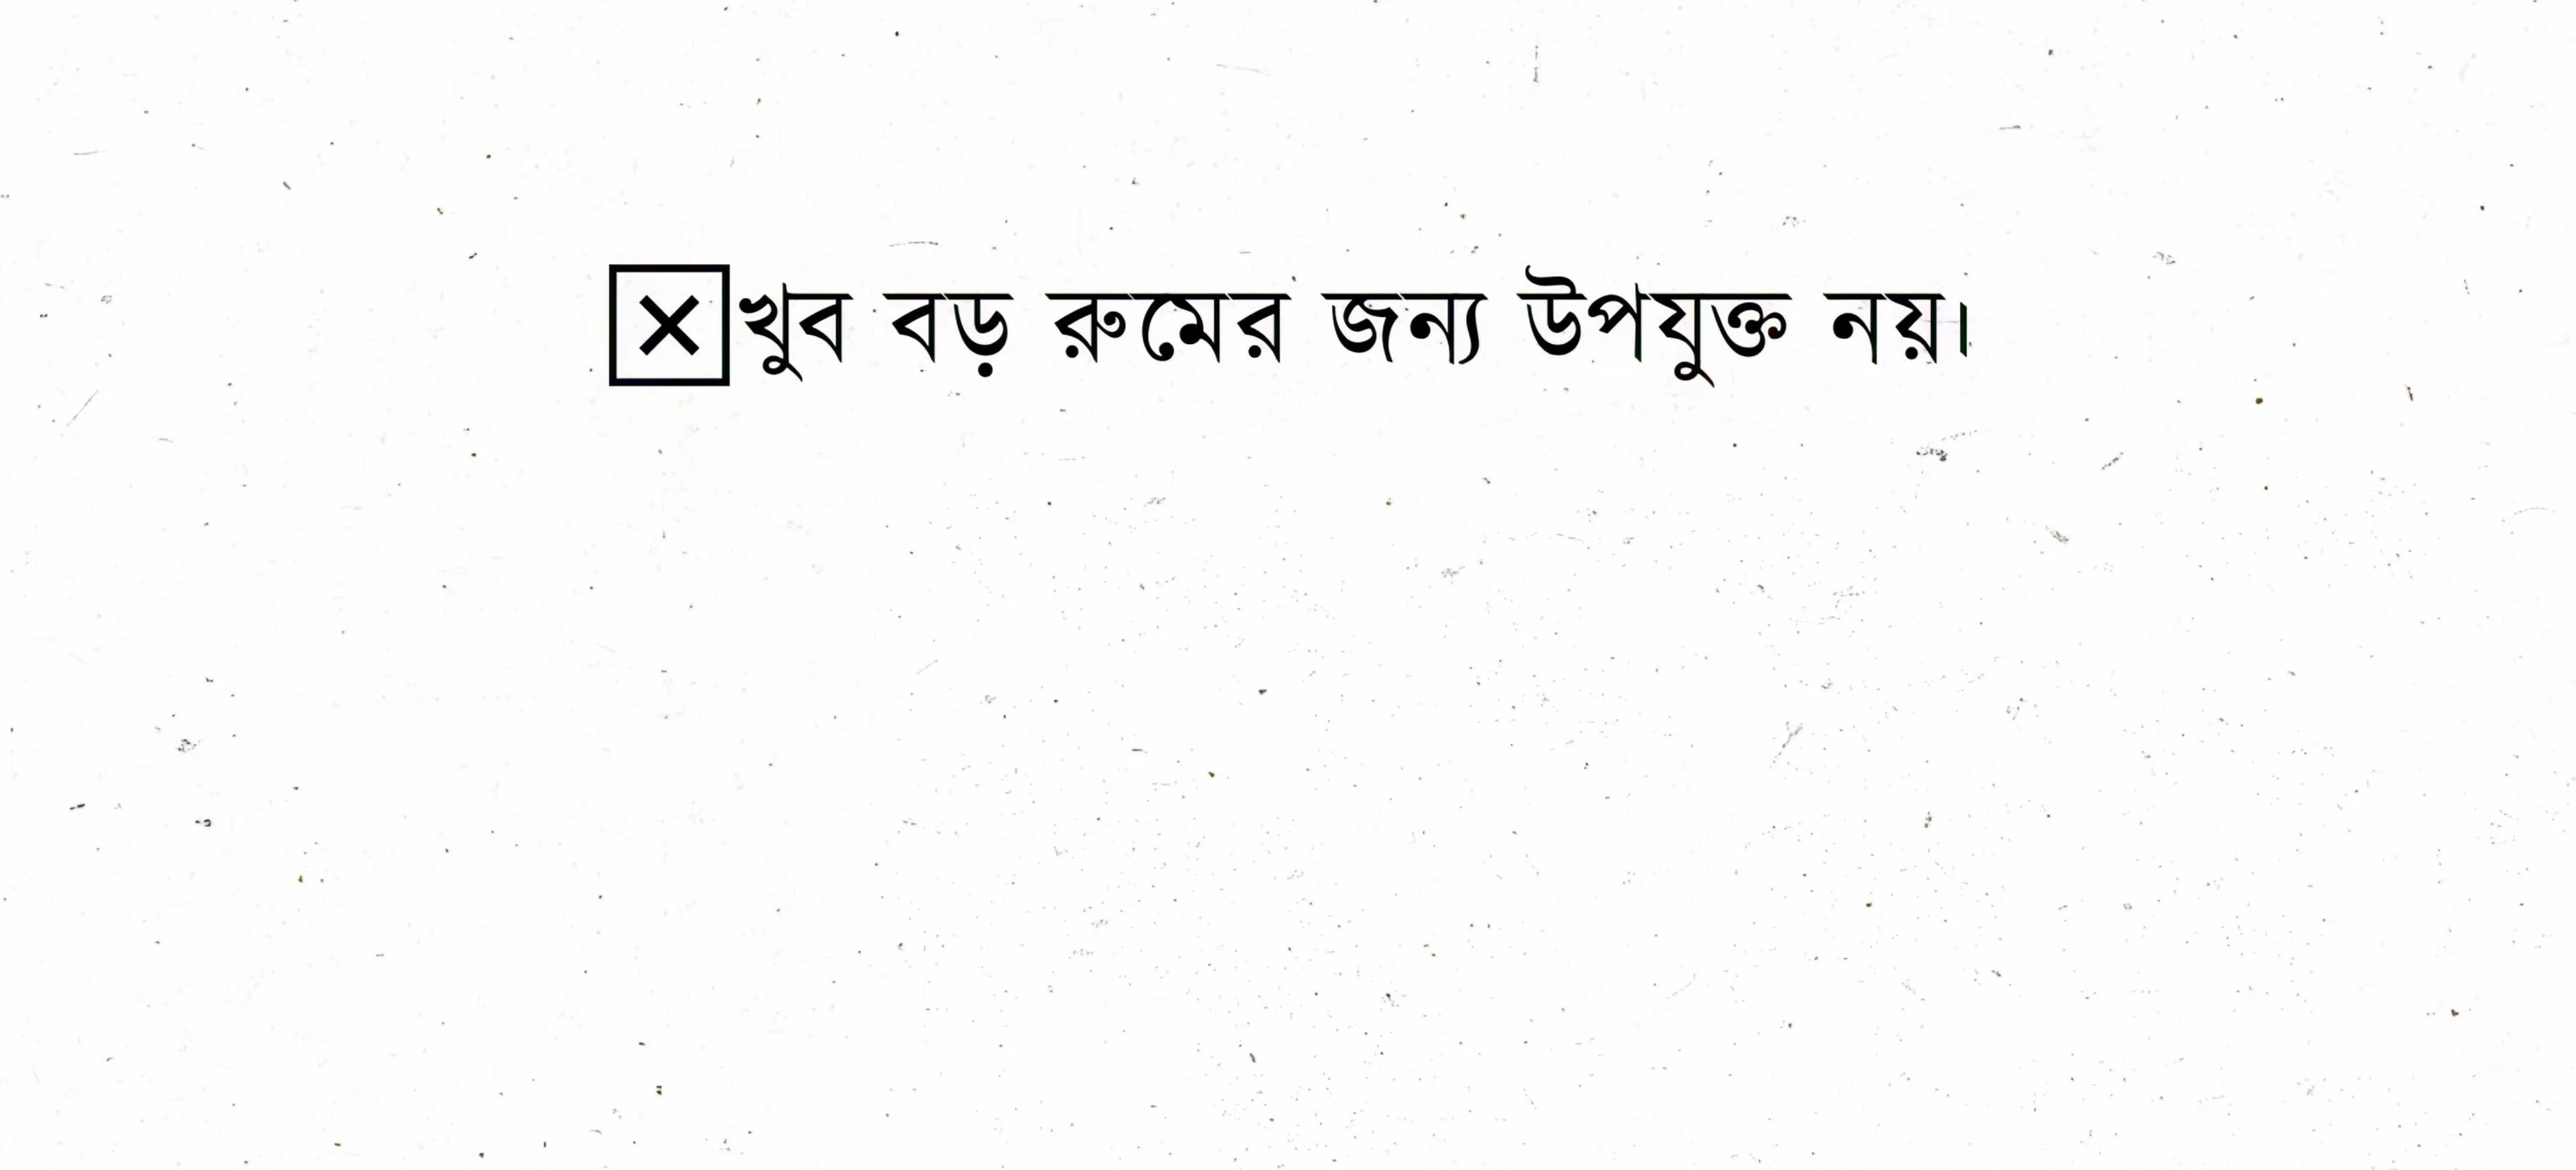 ☒খুব বড় রুমের জন্য উপযুক্ত নয়।